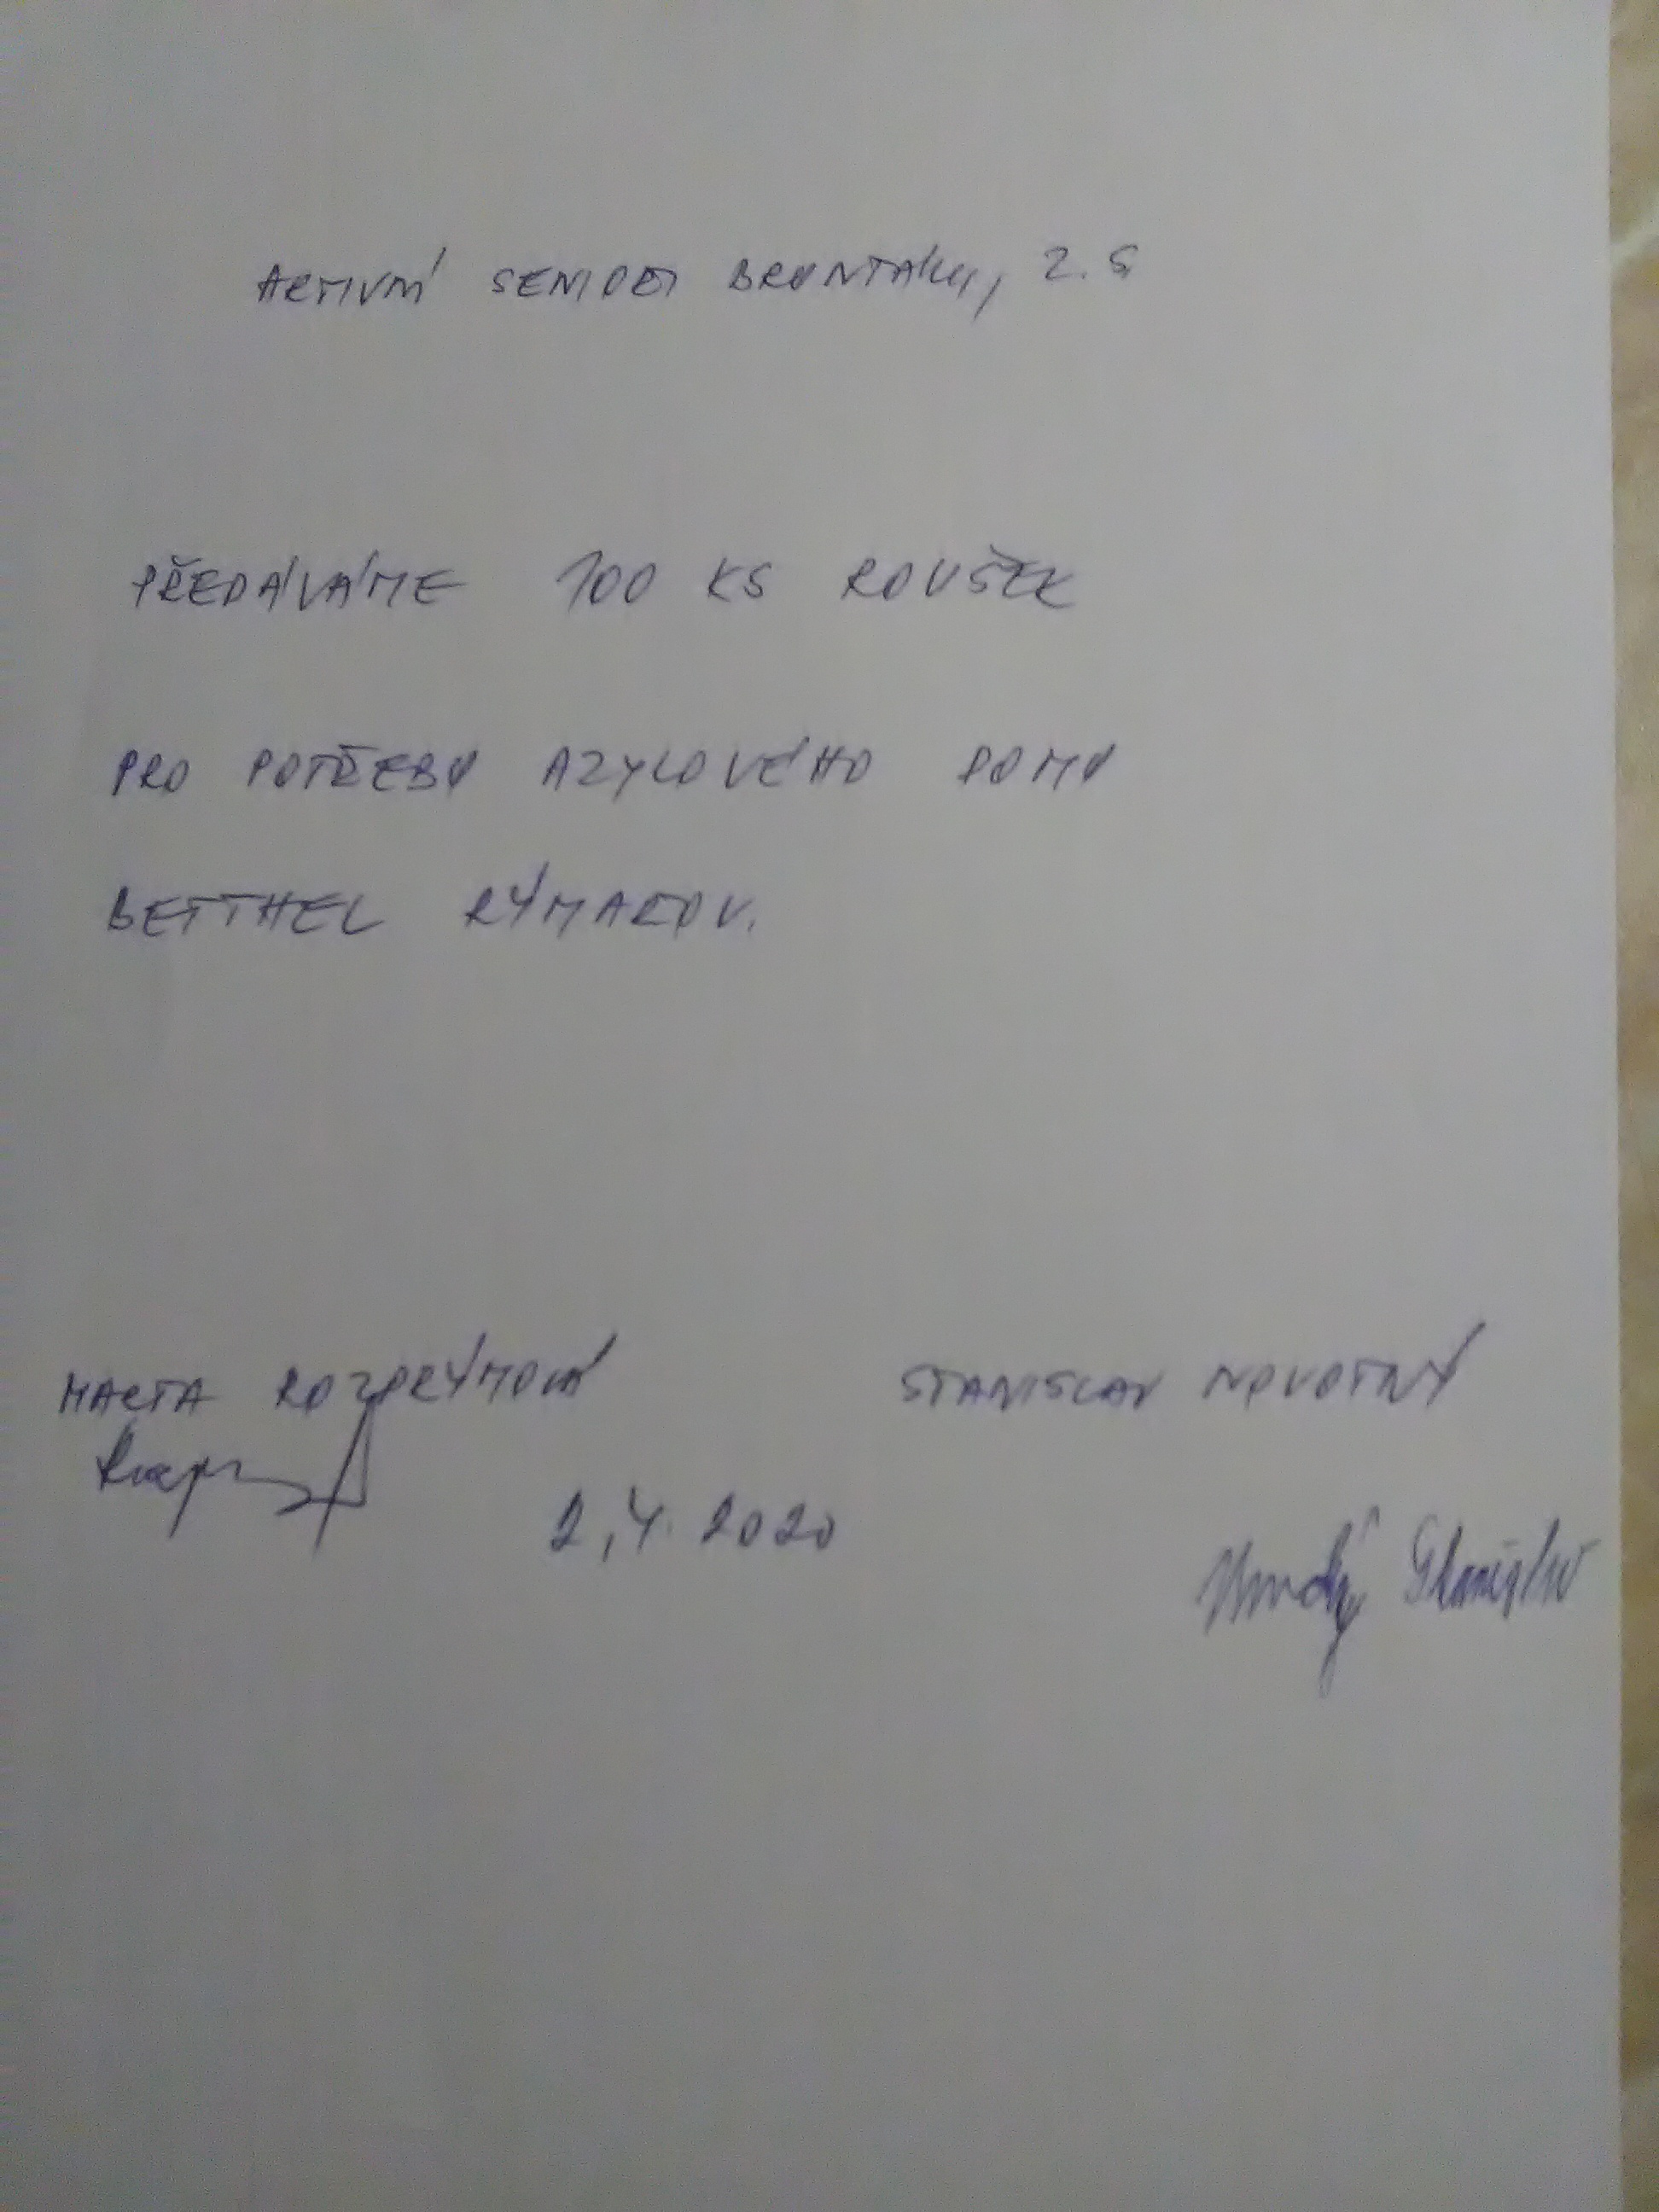 AKTIVNÍ SENIOŘI BRUNTÁLU, Z.S
PŘEDÁVÁME 100 KS ROUŠEK
PRO POTŘEBU AZYLOVÉHO DOMU
BETTHEL RÝMAROV.
MARTA ROZPRÝMOVÁ STANISLAV NOVOTNÝ
2.4.2020
Novotný Stanislav